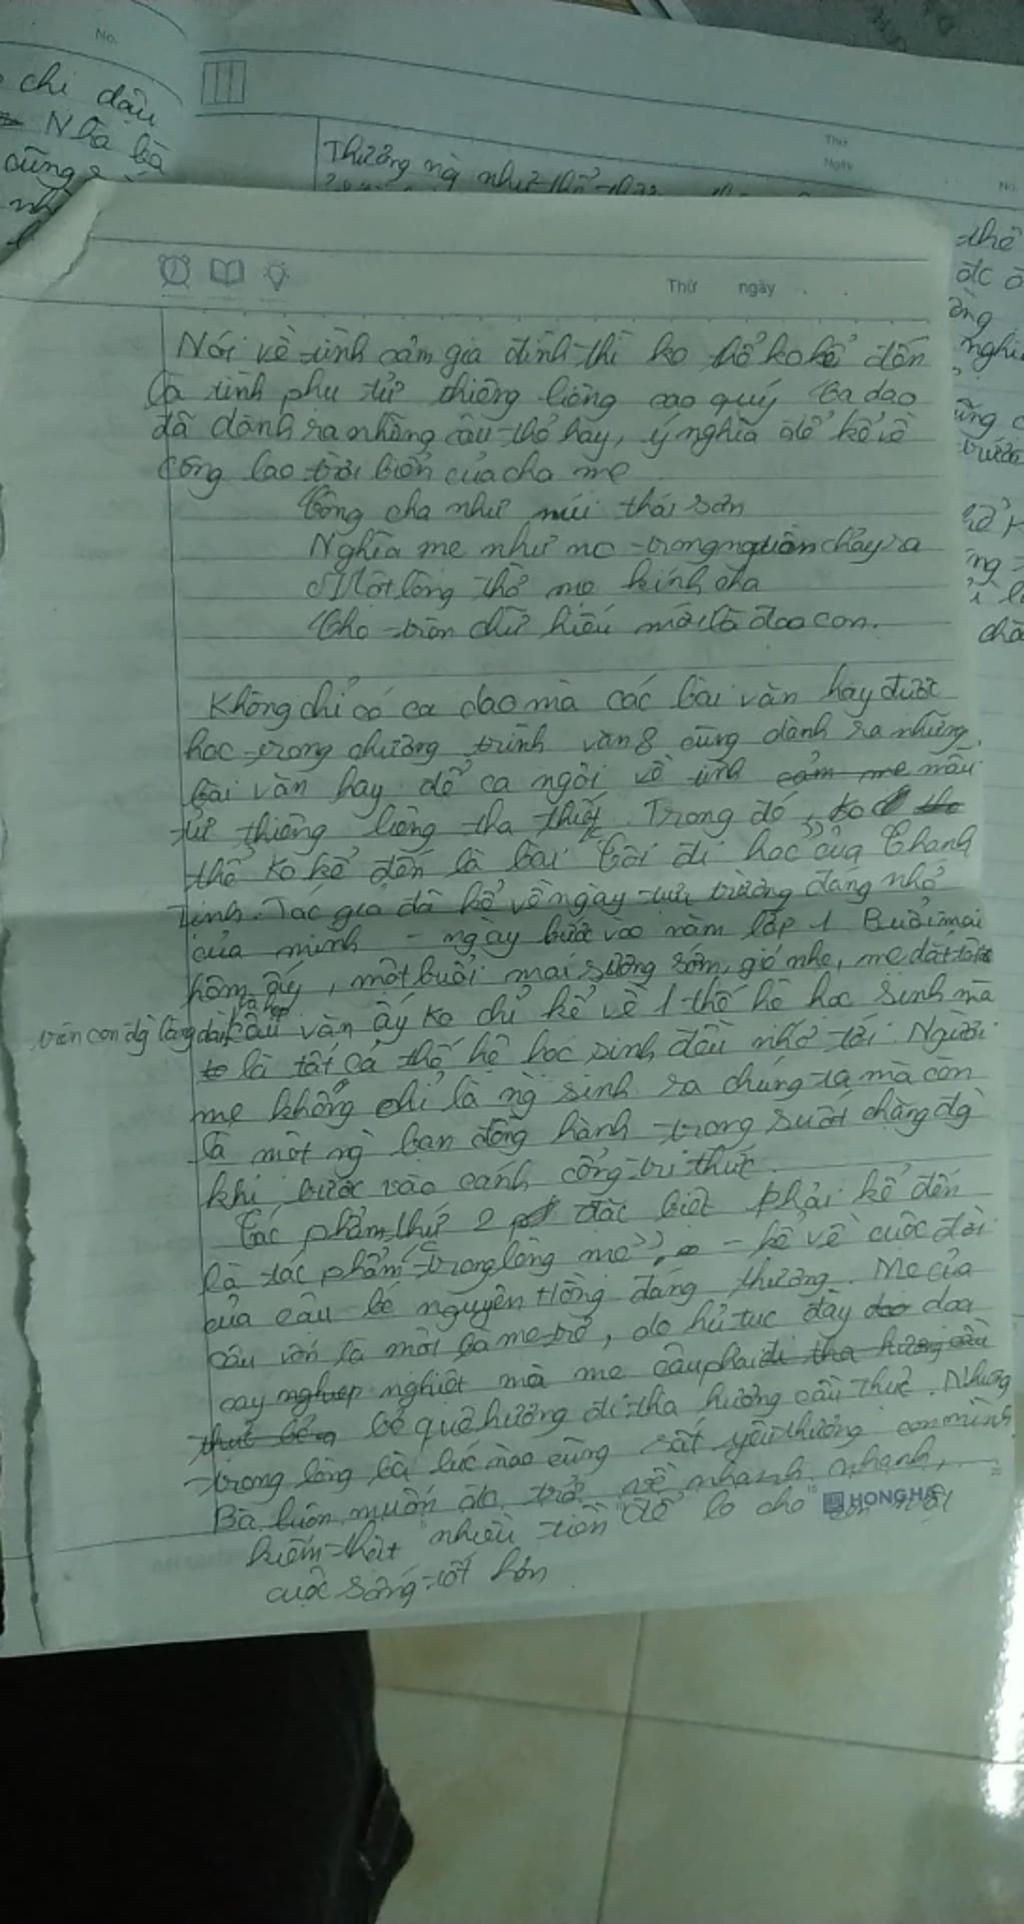 No.
chi dậu
Nhà bà
cũng
Thứ
Ngày
No.
Thường ng
thê
nghi
Thứ ngày
Nói về tình cảm gia đình thì ko thể ko kể đến
là tình phụ tử thiêng liêng cao quý Ca dao
đã dành ra những câu thơ hay, ý nghĩa để kể về
công lao trời biển của cha mẹ
Công cha như núi thái sơn
Nghĩa mẹ như nc trong nguồn chảy ra
Một lòng thờ mẹ kính cha
Cho tròn chữ hiếu mới là đạo con.
Không chỉ có ca dao mà các bài văn hay được
học trong chương trình văn 8 cũng dành ra những
bài văn hay để ca ngợi về tình cảm mẹ mẫu
tử thiêng liêng tha thiết. Trong đó, ko
thể ko kể đến là bài "Tôi đi học" của Thanh
Tịnh. Tác giả đã kể về ngày tựu trường đáng nhớ
của mình - ngày bước vào năm lớp 1 Buổi mai
hôm ấy, một buổi mai sương sớm, gió nhẹ, mẹ dắt tôi
trên con đg làng dài và hẹp Câu văn ấy ko chỉ kể về 1 thế hệ học sinh mà
là tất cả thế hệ học sinh đều nhớ tới. Người
mẹ không chỉ là ng sinh ra chúng ta mà còn
là một ng bạn đồng hành trong suốt chặng đg
khi bước vào cánh cổng tri thức.
Tác phẩm thứ 2 đặc biệt phải kể đến
là tác phẩm "trong lòng mẹ" - kể về cuộc đời
của cậu bé nguyên Hồng đáng thương. Mẹ của
cậu vốn là một bà mẹ trẻ, do hủ tục đầy đoạ
cay nghiệt mà mẹ cậu phải đi tha hương cầu
thực bỏ quê hương đi tha hương cầu thực. Nhưng
trong lòng bà lúc nào cũng rất yêu thương con mình.
Bà luôn muốn trở về nhanh nhanh,
kiếm thật nhiều tiền để lo cho con một
HONG HA
cuộc sống tốt hơn